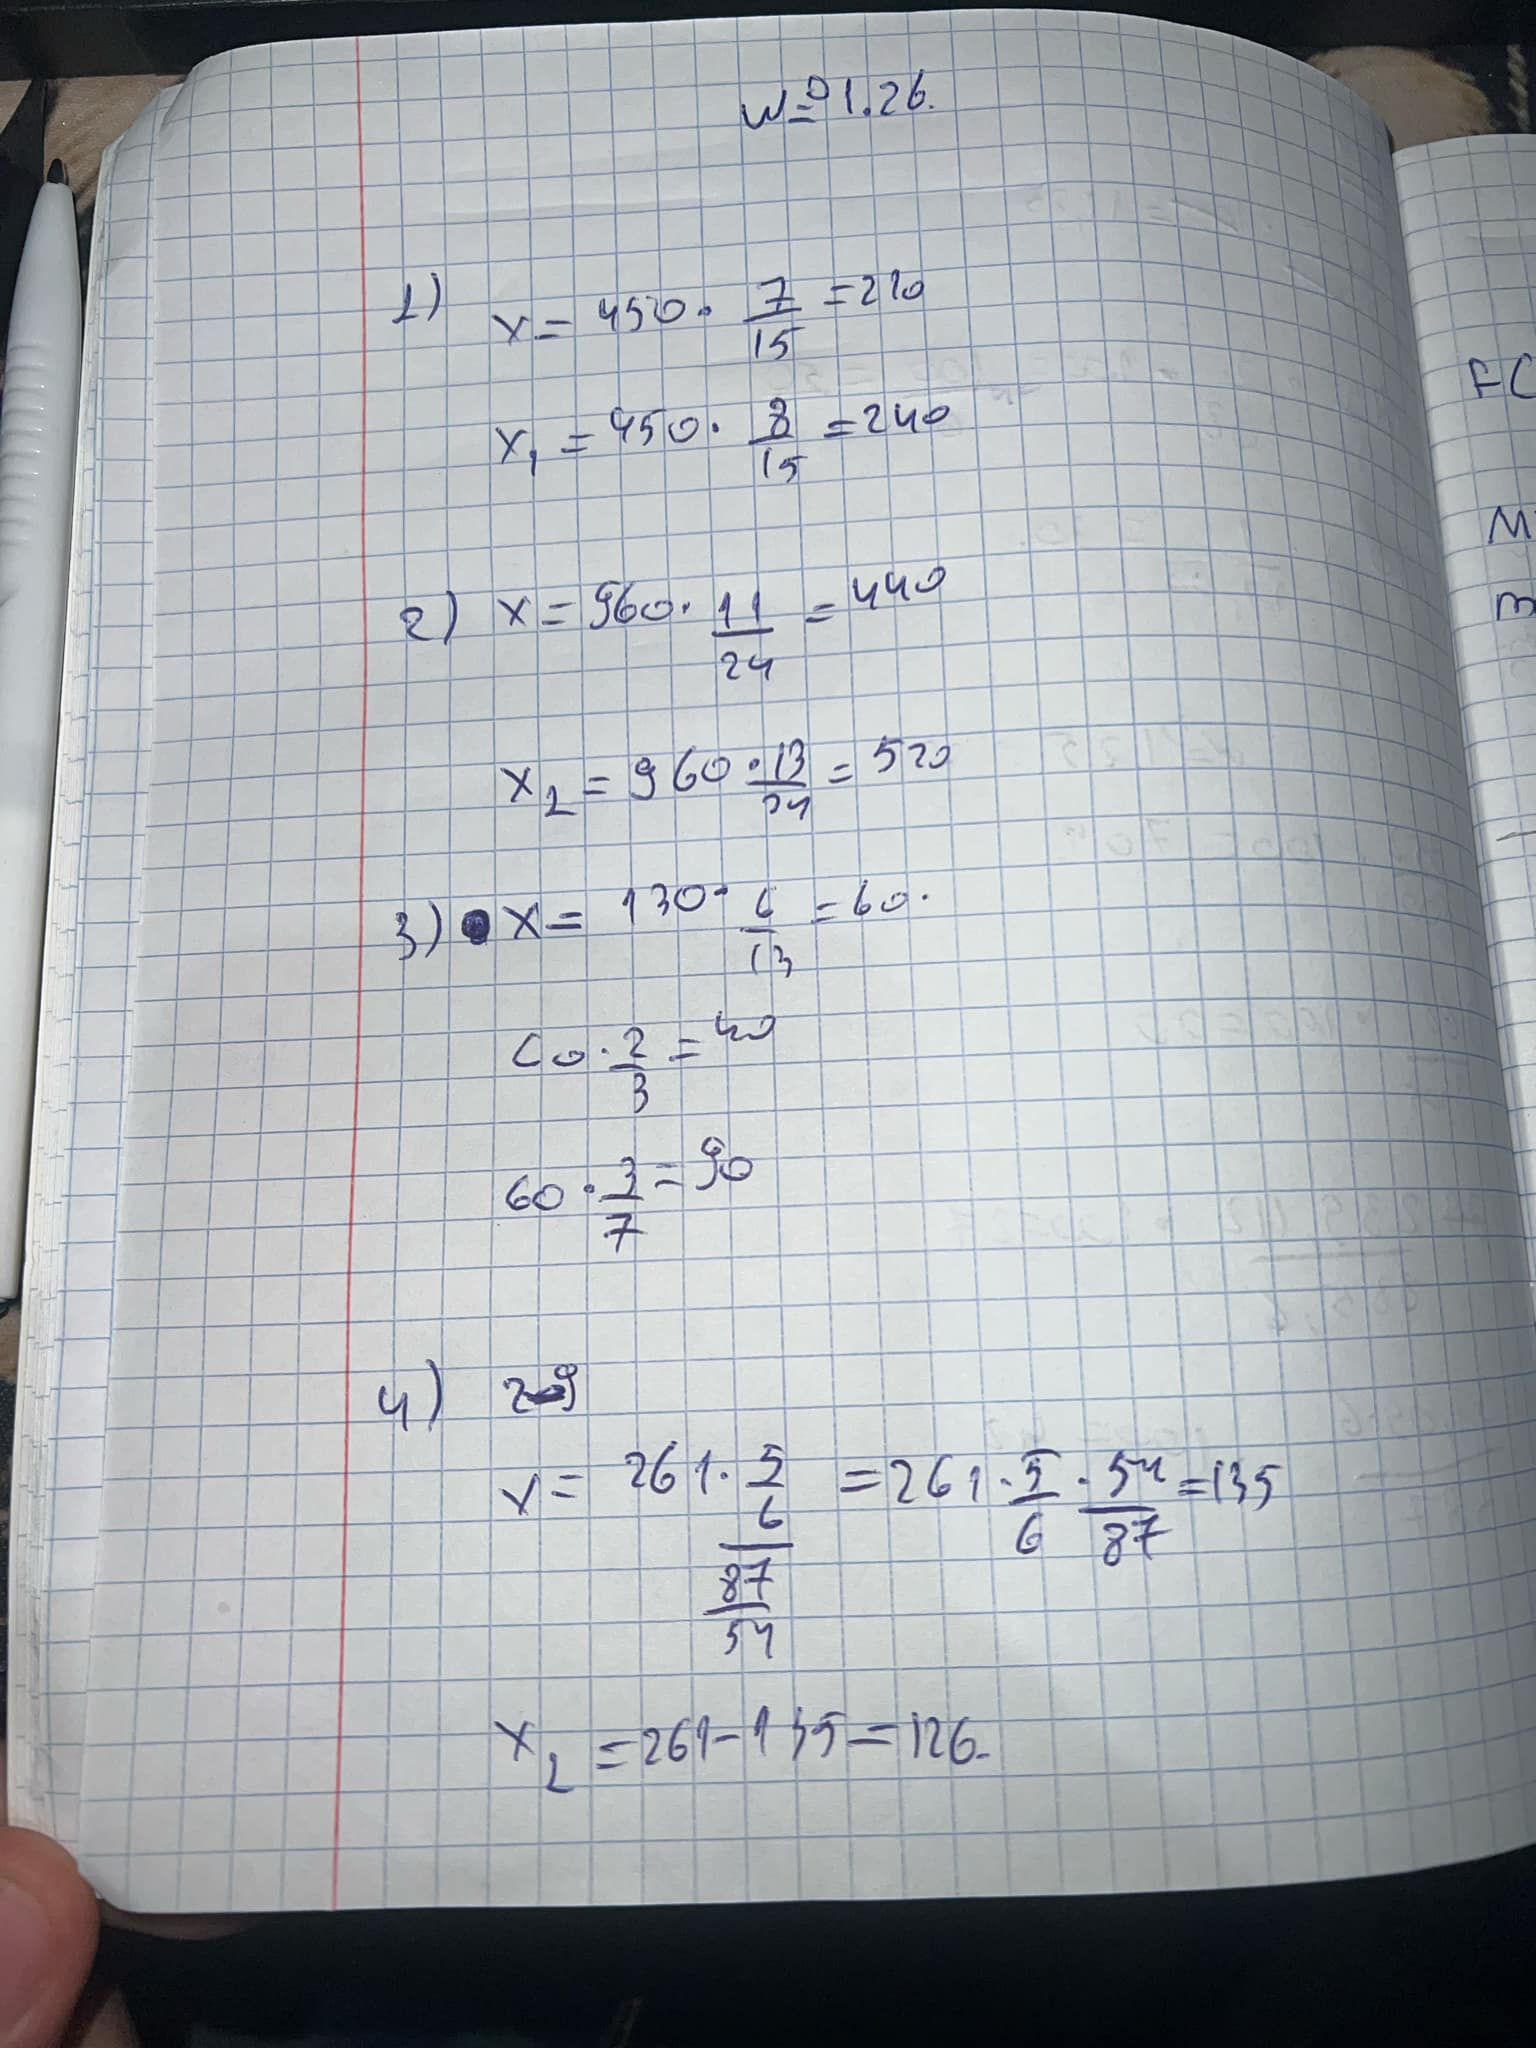 № 1.26.
1) x = 450 · 7/15 = 210
x₁ = 450 · 8/15 = 240
2) x = 960 · 11/24 = 440
x₂ = 960 · 13/24 = 520
3) x = 130 · 6/13 = 60.
60 · 2/3 = 40
60 · 3/7 = 90
4)
x = 261 · 5/6 / 87/54 = 261 · 5/6 · 54/87 = 135
x₂ = 261 - 135 = 126.
FC